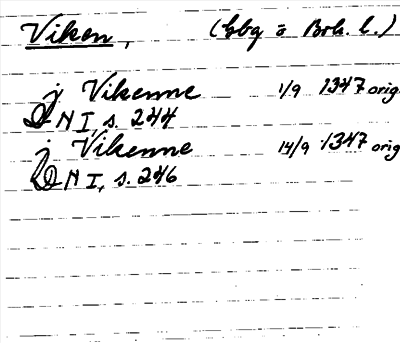 Viken, (Gbg o Boh. l.)
j Vikenne 1/9 1347 orig.
DN I, s. 244
j Vikenne 14/9 1347 orig
DN I, s. 246